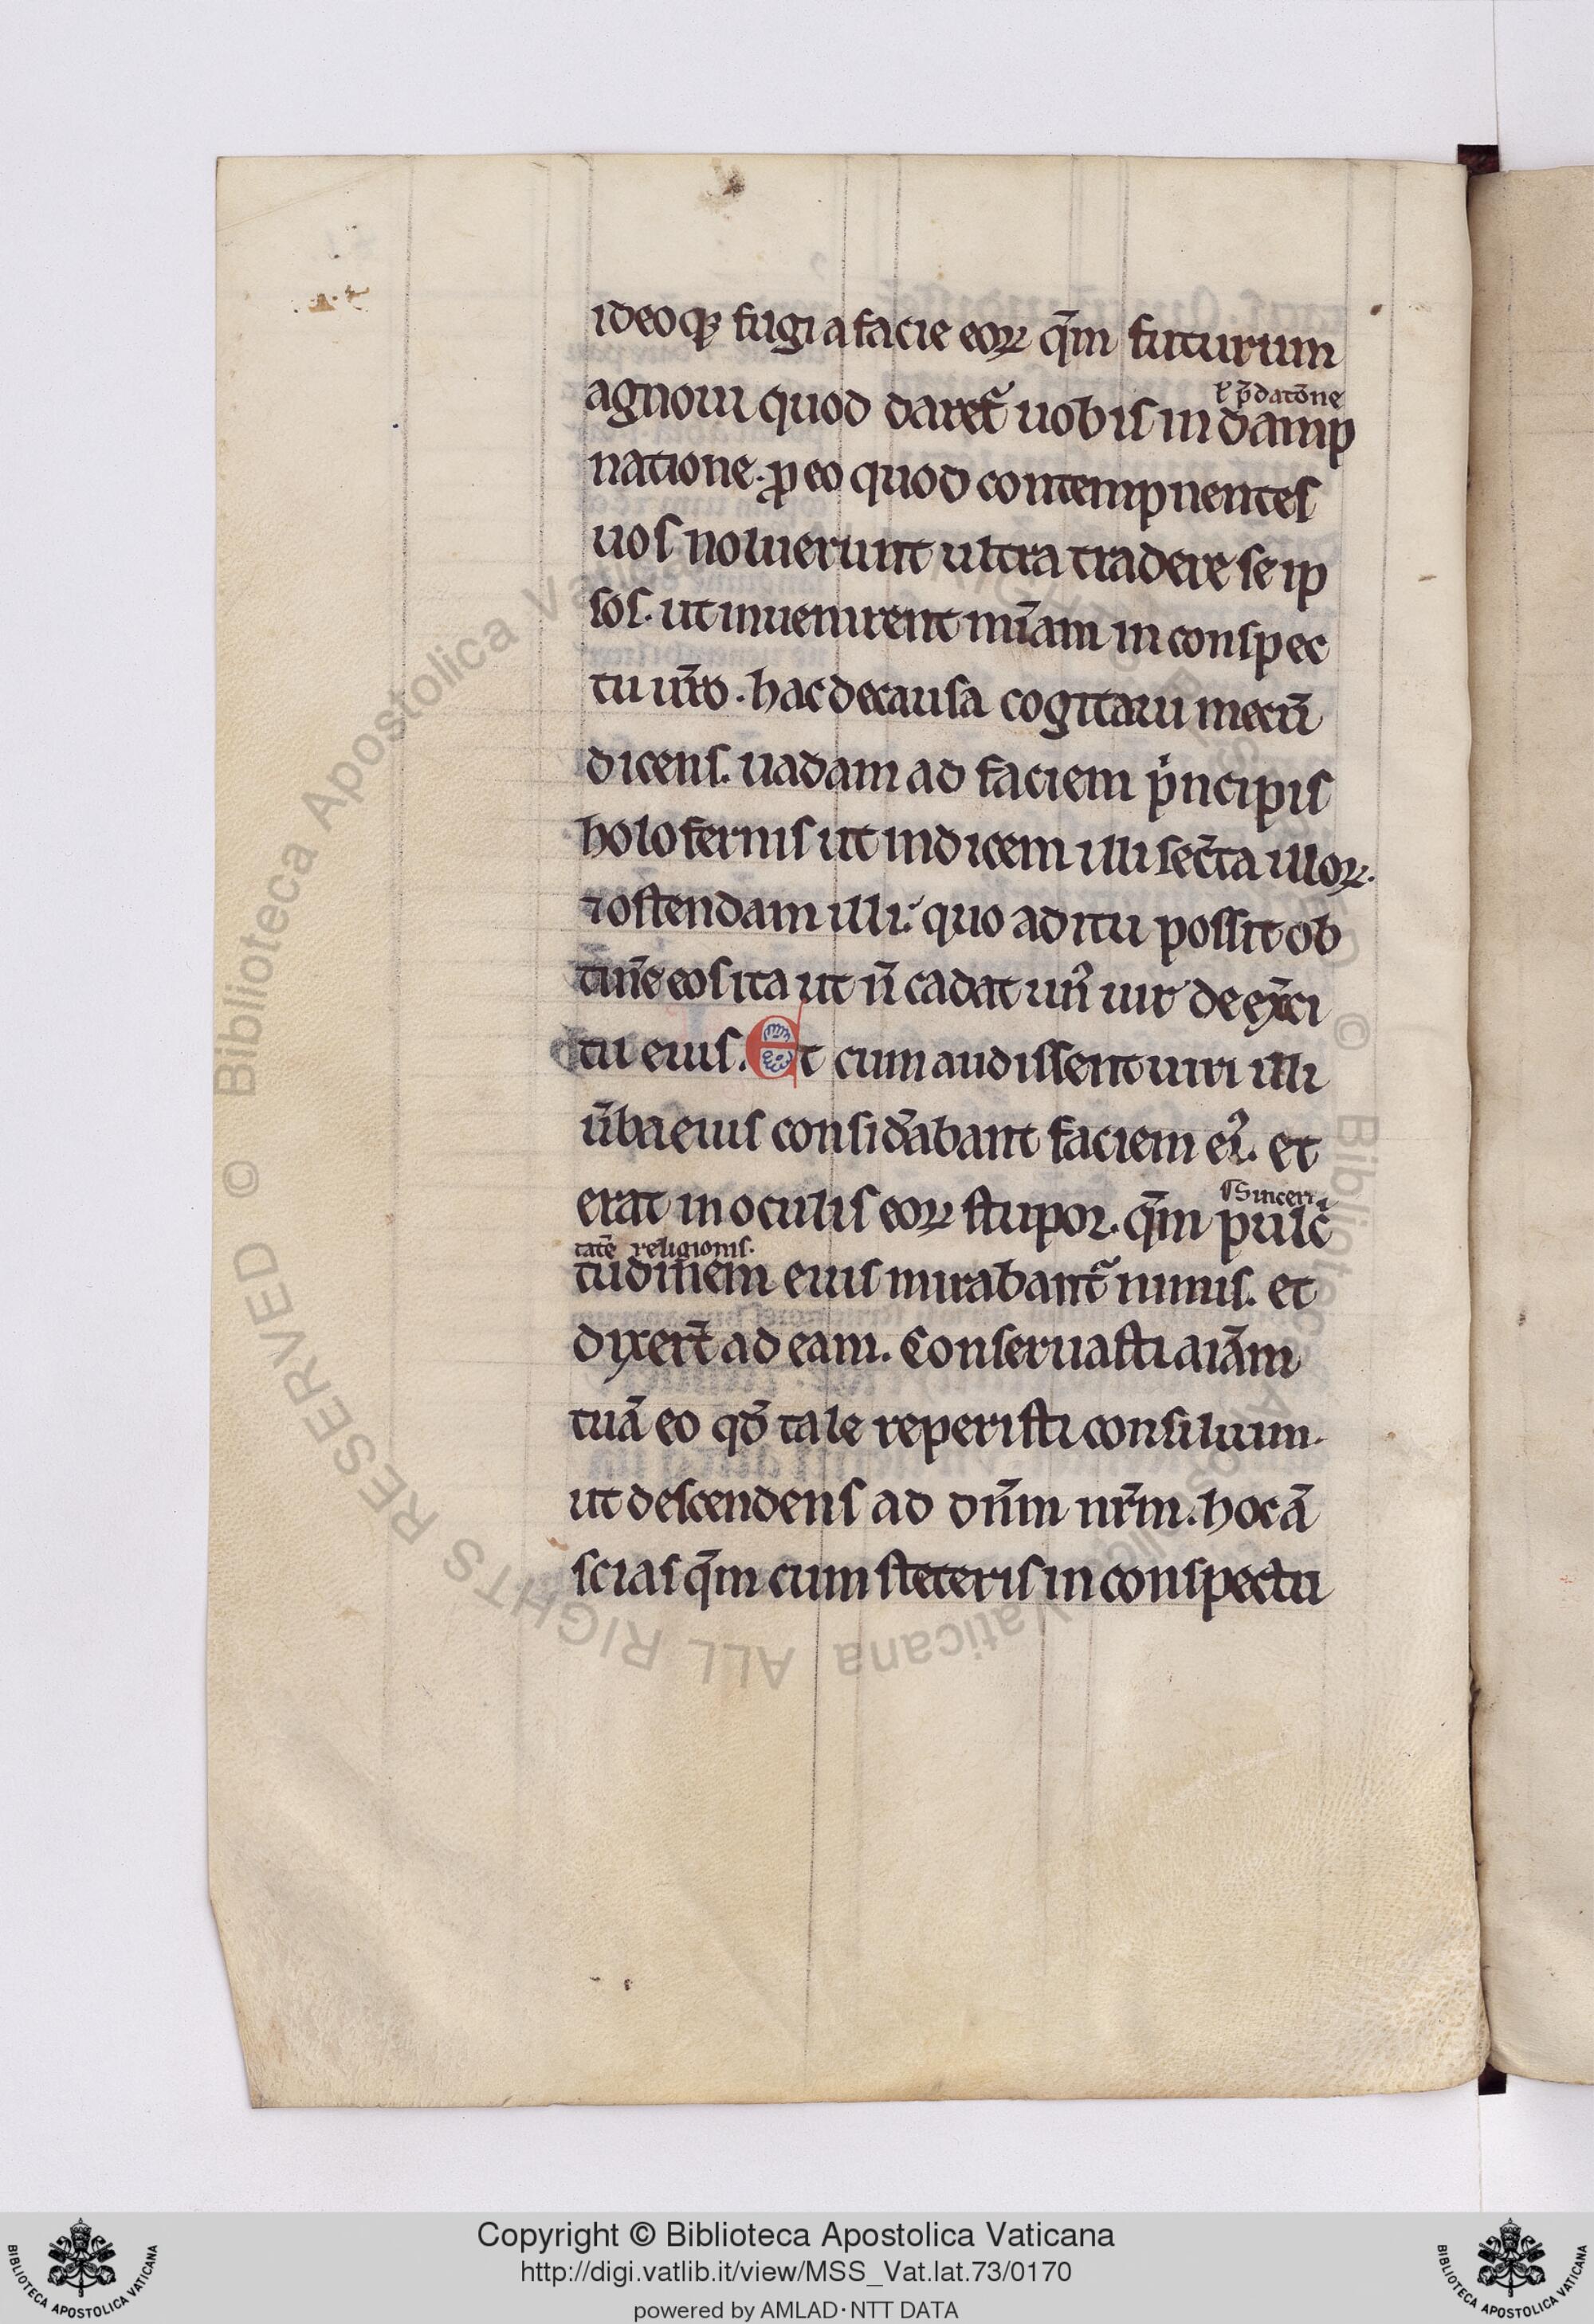 ideoqꝫ fugi a facie eoꝝ qm̄ futurum
ł p̄datōne
agnoui quod daret᷑ uobis in damp
natione. ꝓ eo quod contempnentes
uos noluerunt ultra tradere se ip
sos. ut inuenirent mīam in conspec
tu ur̄o. hac de causa cogitaui mecū
dicens. uadam ad faciem pⁱncipis
holofernis ut indicem illi sec̄ta illoꝝ.
⁊ ostendam illi: quo aditu possit ob
tin̄e eos ita ut n̄ cadat unꝰ uir de ex̄ci
tu eius. Et cum audissent uiri illi
ūba eius consid̄abant faciem eiꝰ. et
erat in oculis eoꝝ stupor. qm̄ pulc̄
ł sinceri
tatē religionis.
tudinem eius mirabant᷑ nimis. et
dixer̄t ad eam. Conseruasti aīam
tuā eo qđ tale reperisti consilium.
ut descendens ad dn̄m nr̄m. hoc ā
scias qm̄ cum steteris in conspectu
Copyright © Biblioteca Apostolica Vaticana
http://digi.vatlib.it/view/MSS_Vat.lat.73/0170
powered by AMLAD·NTT DATA
BIBLIOTECA APOSTOLICA VATICANA
BIBLIOTECA APOSTOLICA VATICANA
© Biblioteca Apostolica Vaticana ALL RIGHTS RESERVED